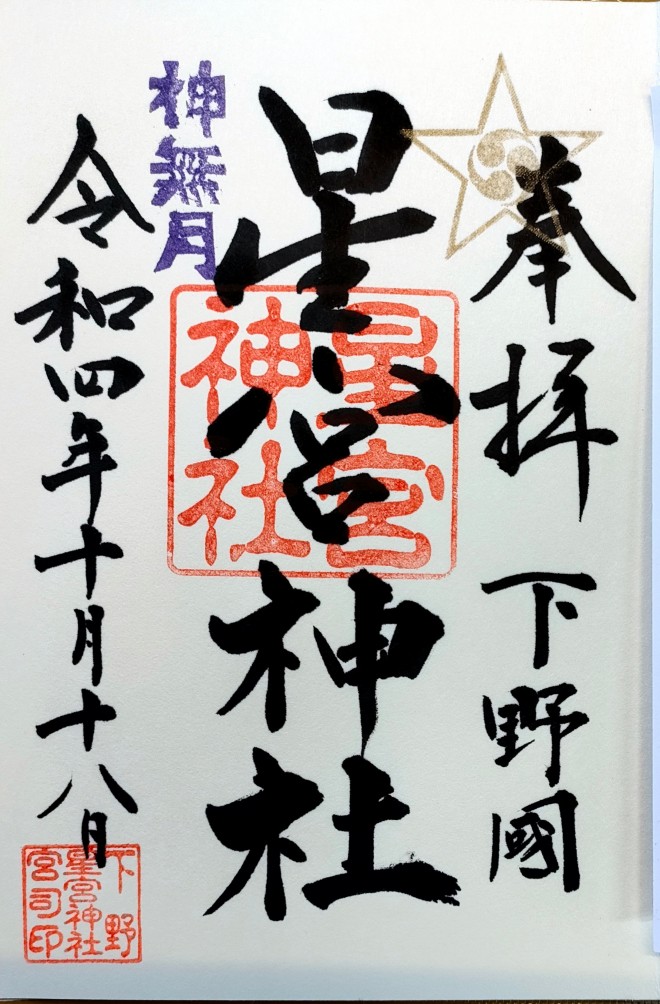 奉拝 下野國
星宮神社
星宮神社
神無月
令和四年十月十八日
下野星宮神社宮司印